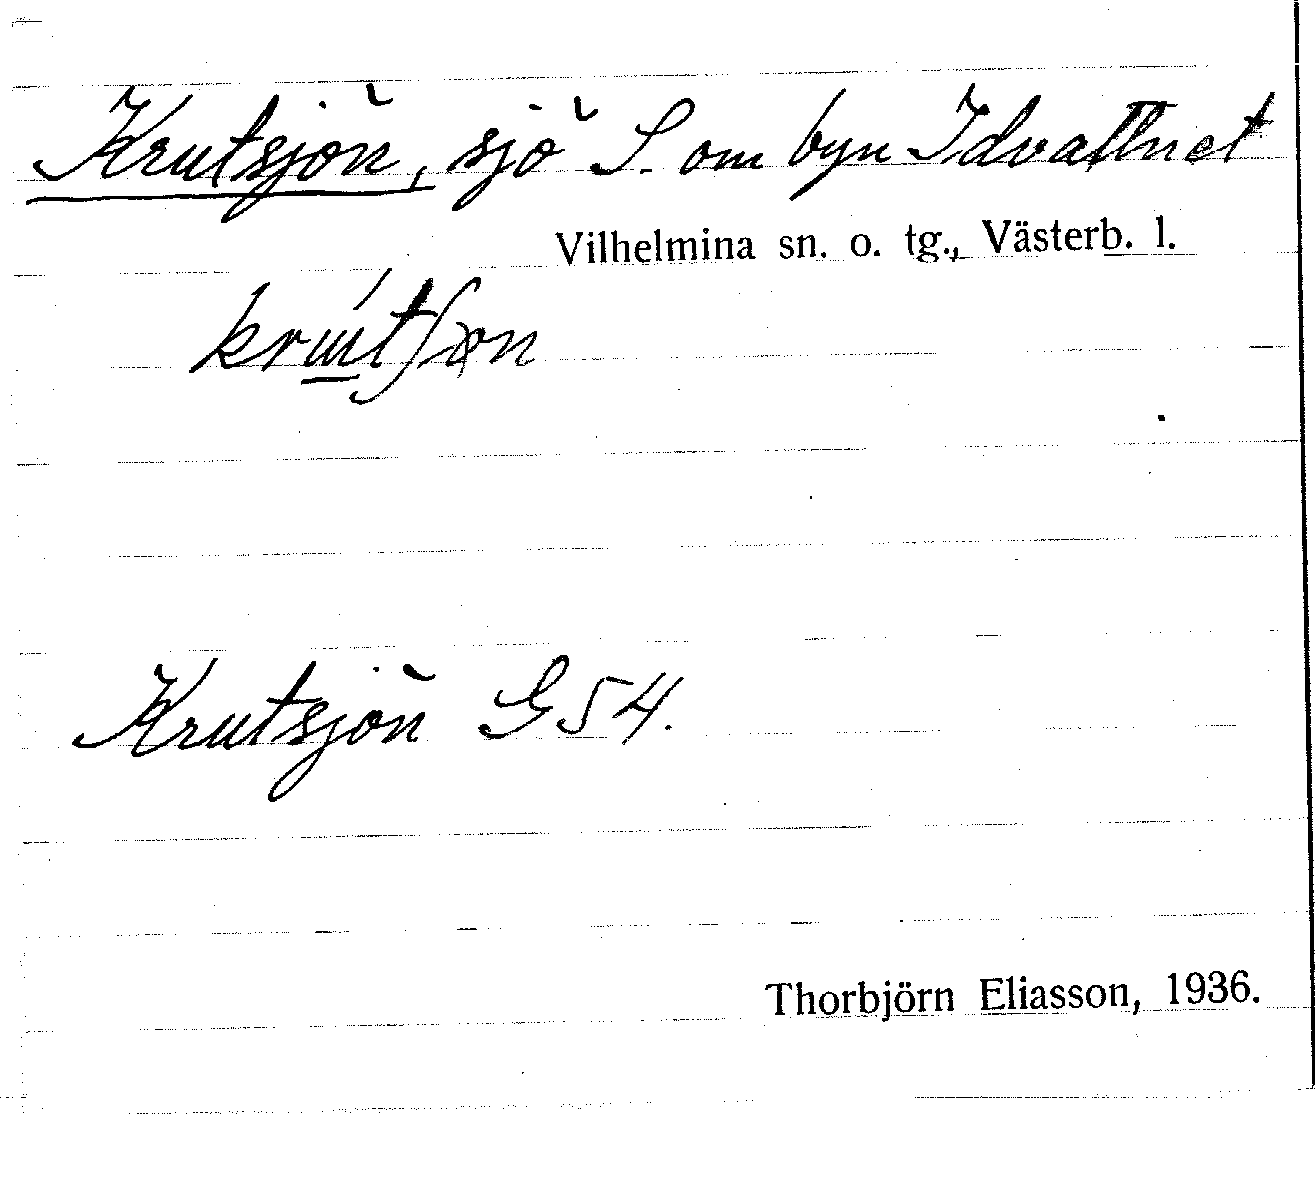 Krutsjön, sjö S. om byn Idvattnet
Vilhelmina sn. o. tg., Västerb. l.
Krutsjön G 54.
Thorbjörn Eliasson, 1936.